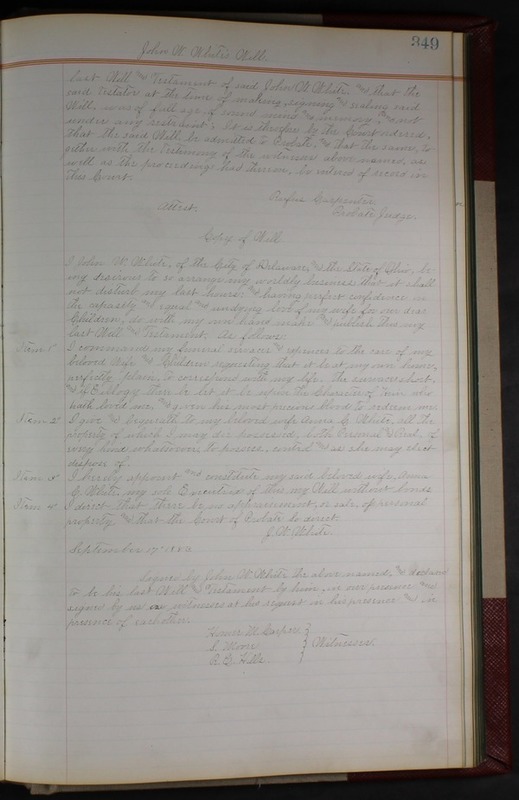 349
John W. White's Will.
last Will and Testament of said John W. White, and that the
said Testator at the time of making, signing and sealing said
Will, was of full age, of sound mind and memory, and not
under any restraint; It is therefore by the Court ordered,
that the said Will be admitted to Probate, and that the same, to
gether with the Testimony of the witnesses above named, as
well as the proceedings had thereon, be entered of record in
this Court.
Attest. Rufus Carpenter
Probate Judge.
Copy of Will
I John W. White, of the City of Delaware, and the State of Ohio, be-
ing desirous to so arrange my worldly business, that it shall
not disturb my last hours: and having perfect confidence in
the capacity and equal and undying love of my wife for our dear
Children, do with my own hand make and publish this my
last Will and Testament, As follows:
Item 1st I commend my funeral services and expenses to the care of my
beloved Wife and Children requesting that it be at my own home,
perfectly plain, to correspond with my life. The sermon short,
and if Eulogy there be let it be upon the Character of Him who
hath loved me, and given his most precious blood to redeem me.
Item 2d I give and bequeath to my beloved wife Anna C. White, all the
property of which I may die possessed, both Personal and Real, of
every kind whatsoever, to possess, control and as she may elect
dispose of.
Item 3d I hereby appoint and constitute my said beloved wife, Anna
C. White, my sole Executrix of this my Will without bonds
Item 4. I direct that there be no appraisement, or sale, of personal
property, and that the Court of Probate so direct.
J. W. White.
September 17th
Signed by John W. White the above named, and declared
to be his last Will and Testament by him, in our presence and
signed by us as witnesses at his request in his presence and in
presence of each other.
Homer M. Carper }
S. Moore } Witnesses.
Hills }